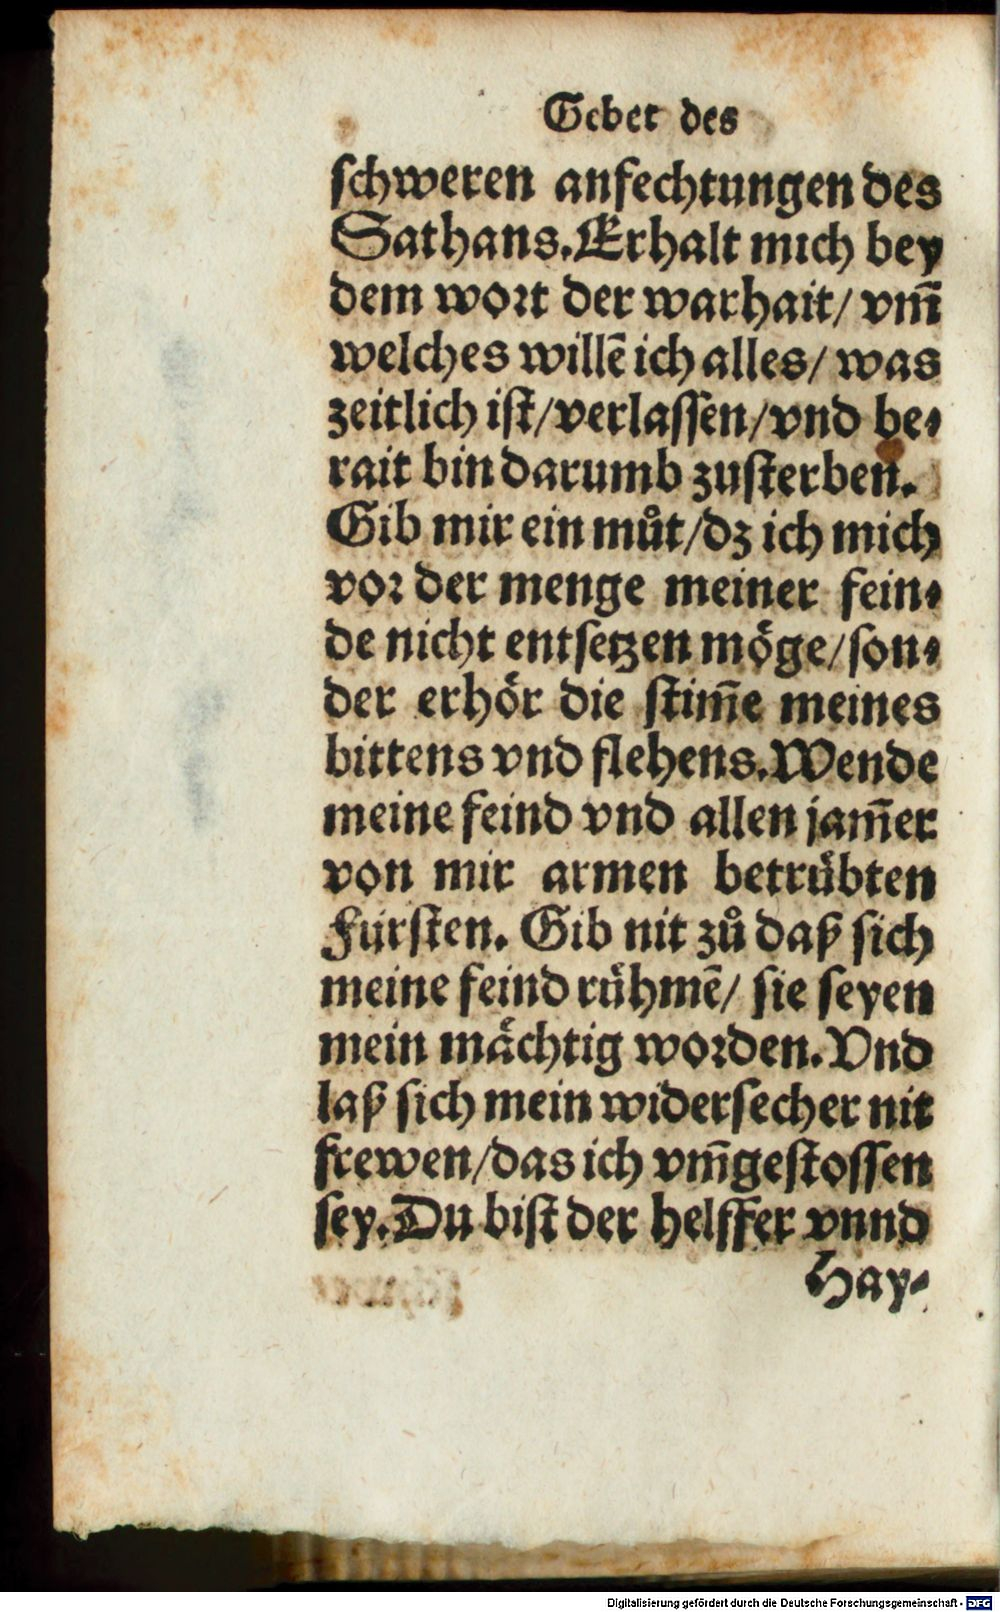 Gebet des
schweren anfechtungen des
Sathans. Erhalt mich bey
dem wort der warhait/ vm̄
welches willē ich alles/ was
zeitlich ist/verlassen/vnd be⸗
rait bin darumb zusterben.
Gib mir ein můt/dz ich mich
vor der menge meiner fein⸗
de nicht entsetzen möge/son⸗
der erhör die stim̄e meines
bittens vnd flehens. Wende
meine feind vnd allen jam̄er
von mir armen betrübten
Fürsten. Gib nit zů daß sich
meine feind rühmē/ sie seyen
mein mächtig worden. Vnd
laß sich mein widersecher nit
frewen/das ich vm̄gestossen
sey. Du bist der helffer vnnd
Hay⸗
Digitalisierung gefördert durch die Deutsche Forschungsgemeinschaft - DFG